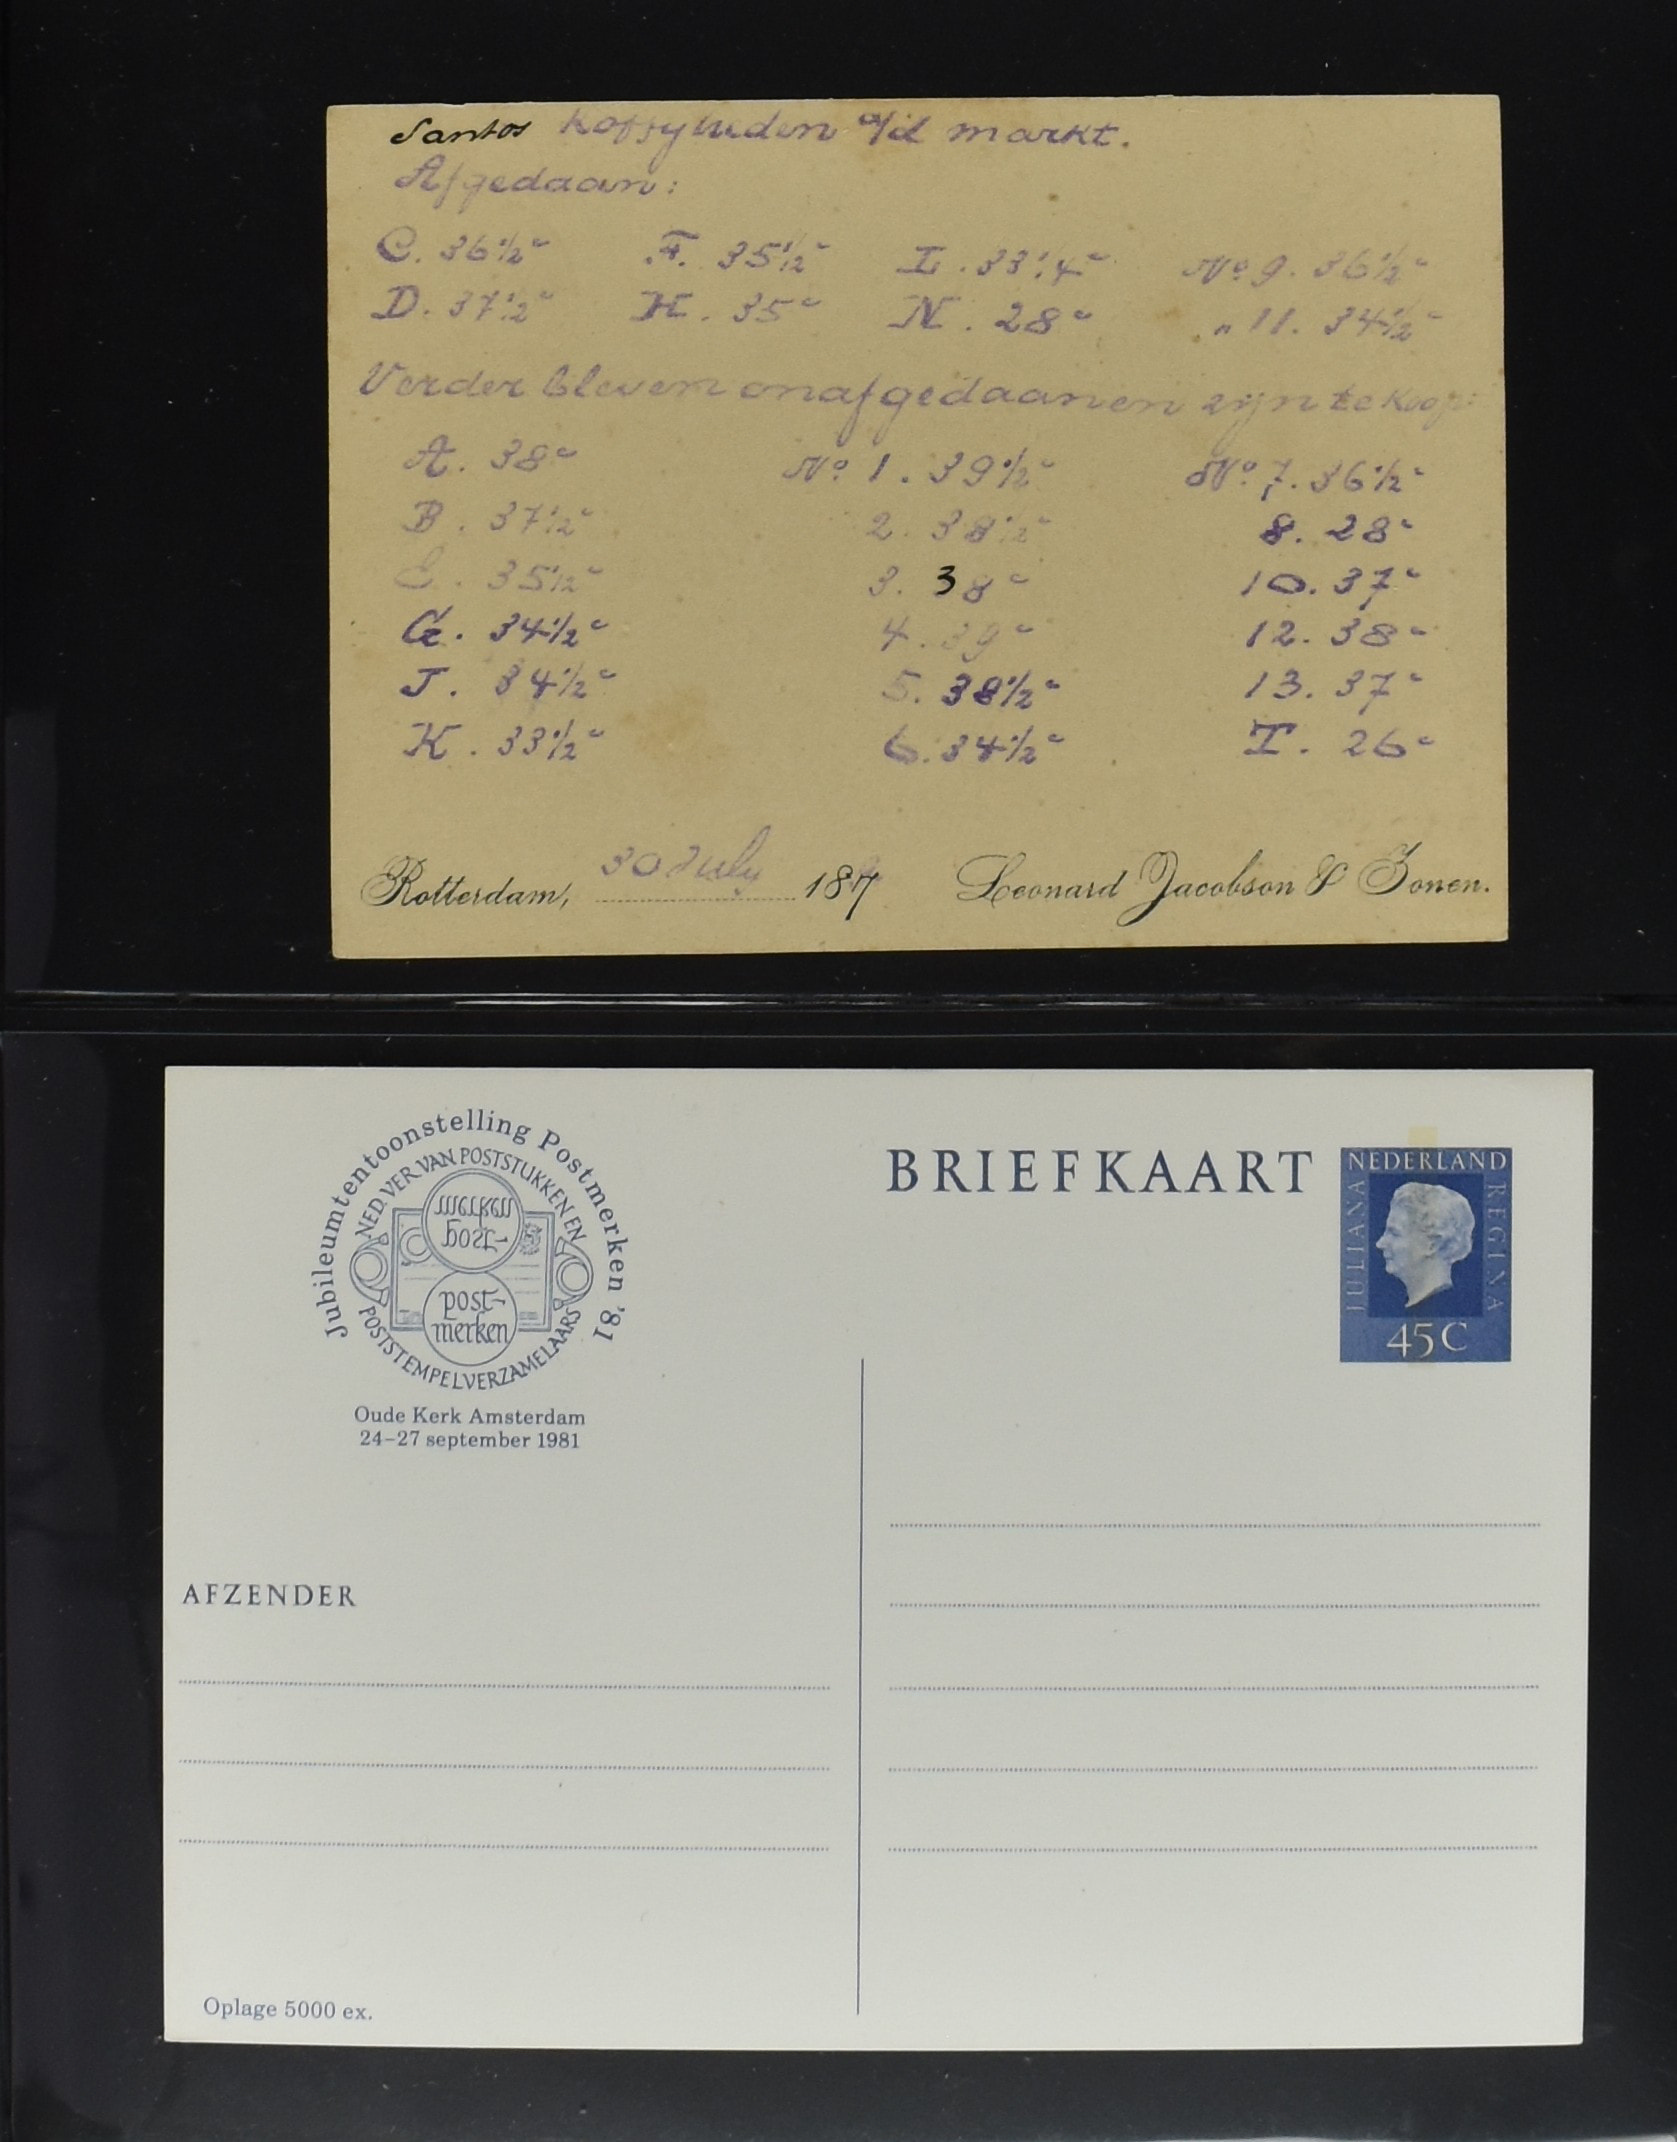 Santos Koffy luiden a/d markt.
Afgedaan:
C. 36½ c F. 35½ c I. 33¼ c No 9. 36½ c
D. 37½ c H. 35 c N. 28 c " 11. 34½ c
Verder bleven onafgedaan en zijn te koop:
A. 38 c No 1. 39½ c No 7. 36½ c
B. 37½ c 2. 38½ c 8. 28 c
E. 35½ c 3. 38 c 10. 37 c
G. 34½ c 4. 39 c 12. 38 c
J. 34½ c 5. 38½ c 13. 37 c
K. 33½ c 6. 34½ c T. 26 c
Rotterdam, 30 July 187 Leonard Jacobson & Zonen.
Jubileumtentoonstelling Postmerken '81
NED VER VAN POSTSTUKKEN EN
POSTSTEMPELVERZAMELAARS
post-
merken
post-
merken
Oude Kerk Amsterdam
24–27 september 1981
BRIEFKAART
NEDERLAND
JULIANA
REGINA
45 C
AFZENDER
Oplage 5000 ex.